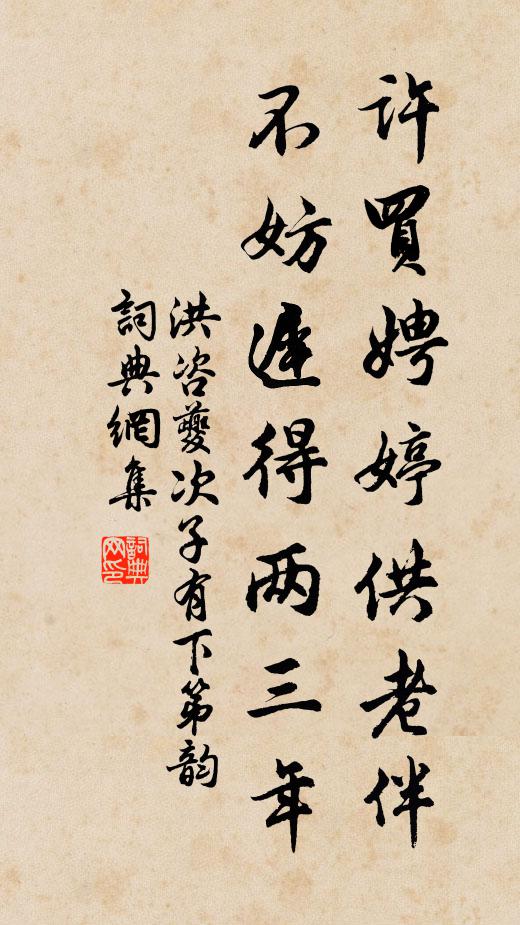 許買娉婷供老伴
不妨遲得两三年
洪咨夔次子有下第韵
詞典網集
詞典
网印